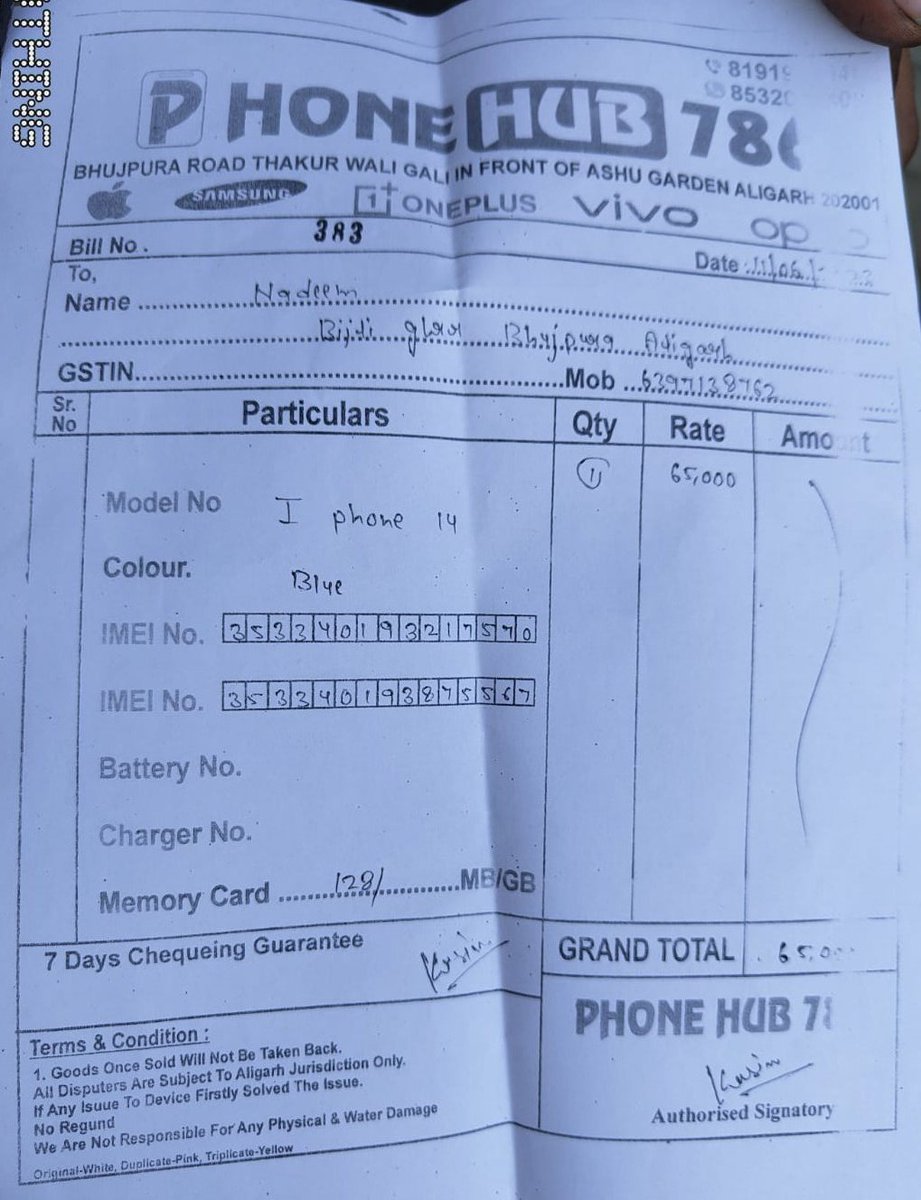 SNIHT
PHONE HUB 786
81919
8532
BHUJPURA ROAD THAKUR WALI GALI IN FRONT OF ASHU GARDEN ALIGARH 202001
SAMSUNG 1+ ONEPLUS vivo op
Bill No. 383
Date 11/06/
To,
Name Nadeem
Bhujpura Aligarh
GSTIN Mob 6397138762
Sr. No Particulars Qty Rate Amount
1 65,000
Model No I phone 14
Colour. Blue
IMEI No. 353340193217570
IMEI No. 353340193875567
Battery No.
Charger No.
Memory Card 128/ MB/GB
7 Days Chequeing Guarantee Kasim
GRAND TOTAL 65,0
PHONE HUB 78
Kasim
Authorised Signatory
Terms & Condition :
1. Goods Once Sold Will Not Be Taken Back.
All Disputers Are Subject To Aligarh Jurisdiction Only.
If Any Isuue To Device Firstly Solved The Issue.
No Regund
We Are Not Responsible For Any Physical & Water Damage
Original-White, Duplicate-Pink, Triplicate-Yellow